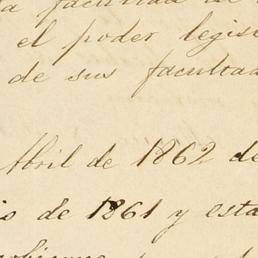 a facultad de
el poder legis
de sus facultad
Abril de 1862 de
de 1861 y esta